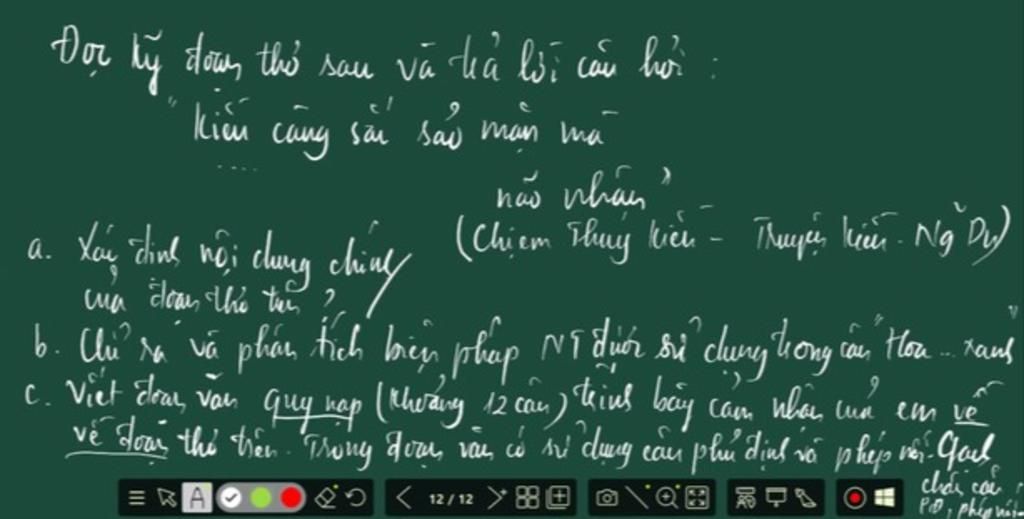 Đọc kỹ đoạn thơ sau và trả lời câu hỏi :
"Kiều càng sắc sảo mặn mà
....
não nhân"
(Chị em Thúy Kiều - Truyện Kiều - Ng Du)
a. Xác định nội dung chính
của đoạn thơ trên ?
b. Chỉ ra và phân tích biện pháp NT được sử dụng trong câu "Hoa ... xanh"
c. Viết đoạn văn quy nạp (khoảng 12 câu) trình bày cảm nhận của em về
về đoạn thơ trên. Trong đoạn văn có sử dụng câu phủ định và phép nối. Gạch
chân câu
PĐ, phép nối.
12 / 12